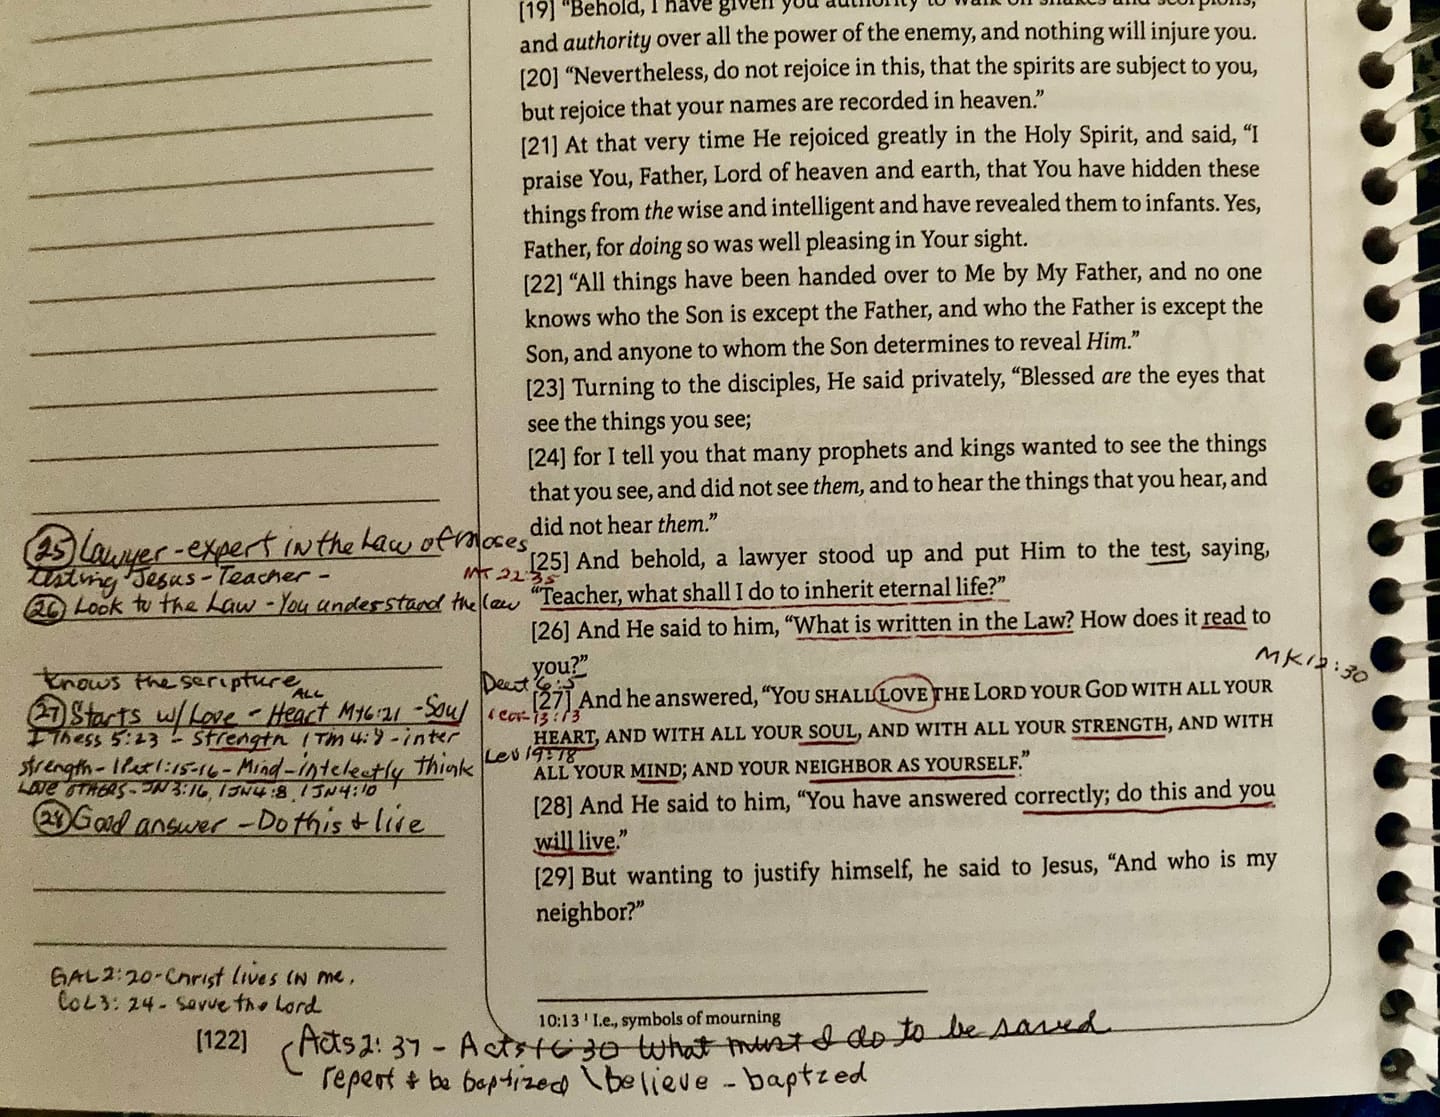 [19] “Behold, I have given you authority to walk on snakes and scorpions,
and authority over all the power of the enemy, and nothing will injure you.
[20] “Nevertheless, do not rejoice in this, that the spirits are subject to you,
but rejoice that your names are recorded in heaven.”
[21] At that very time He rejoiced greatly in the Holy Spirit, and said, “I
praise You, Father, Lord of heaven and earth, that You have hidden these
things from the wise and intelligent and have revealed them to infants. Yes,
Father, for doing so was well pleasing in Your sight.
[22] “All things have been handed over to Me by My Father, and no one
knows who the Son is except the Father, and who the Father is except the
Son, and anyone to whom the Son determines to reveal Him.”
[23] Turning to the disciples, He said privately, “Blessed are the eyes that
see the things you see;
[24] for I tell you that many prophets and kings wanted to see the things
that you see, and did not see them, and to hear the things that you hear, and
did not hear them.”
[25] And behold, a lawyer stood up and put Him to the test, saying,
“Teacher, what shall I do to inherit eternal life?”
[26] And He said to him, “What is written in the Law? How does it read to
you?”
[27] And he answered, “YOU SHALL LOVE THE LORD YOUR GOD WITH ALL YOUR
HEART, AND WITH ALL YOUR SOUL, AND WITH ALL YOUR STRENGTH, AND WITH
ALL YOUR MIND; AND YOUR NEIGHBOR AS YOURSELF.”
[28] And He said to him, “You have answered correctly; do this and you
will live.”
[29] But wanting to justify himself, he said to Jesus, “And who is my
neighbor?”
10:13 ¹ I.e., symbols of mourning
25 Lawyer - expert in the Law of Moses
testing Jesus - Teacher -
MT 22:35
26 Look to the Law - You understand the law
knows the scripture
ALL
27 Starts w/ Love - Heart Mt 6:21 - Soul
I Thess 5:23 - Strength 1 Tm 4:8 - inter
strength - 1 Pet 1:15-16 - Mind - intelectly Think
LOVE OTHERS - JN 3:16, 1 JN 4:8, 1 JN 4:10
28 Good answer - Do this + live
Deut 6:5
1 Cor 13:13
Lev 19:18
MK 12:30
GAL 2:20 - Christ lives IN me.
COL 3:24 - Serve the Lord
[122]
Acts 2:37 - Acts 16:30 What must I do to be saved
repent + be baptized \ believe - baptzed